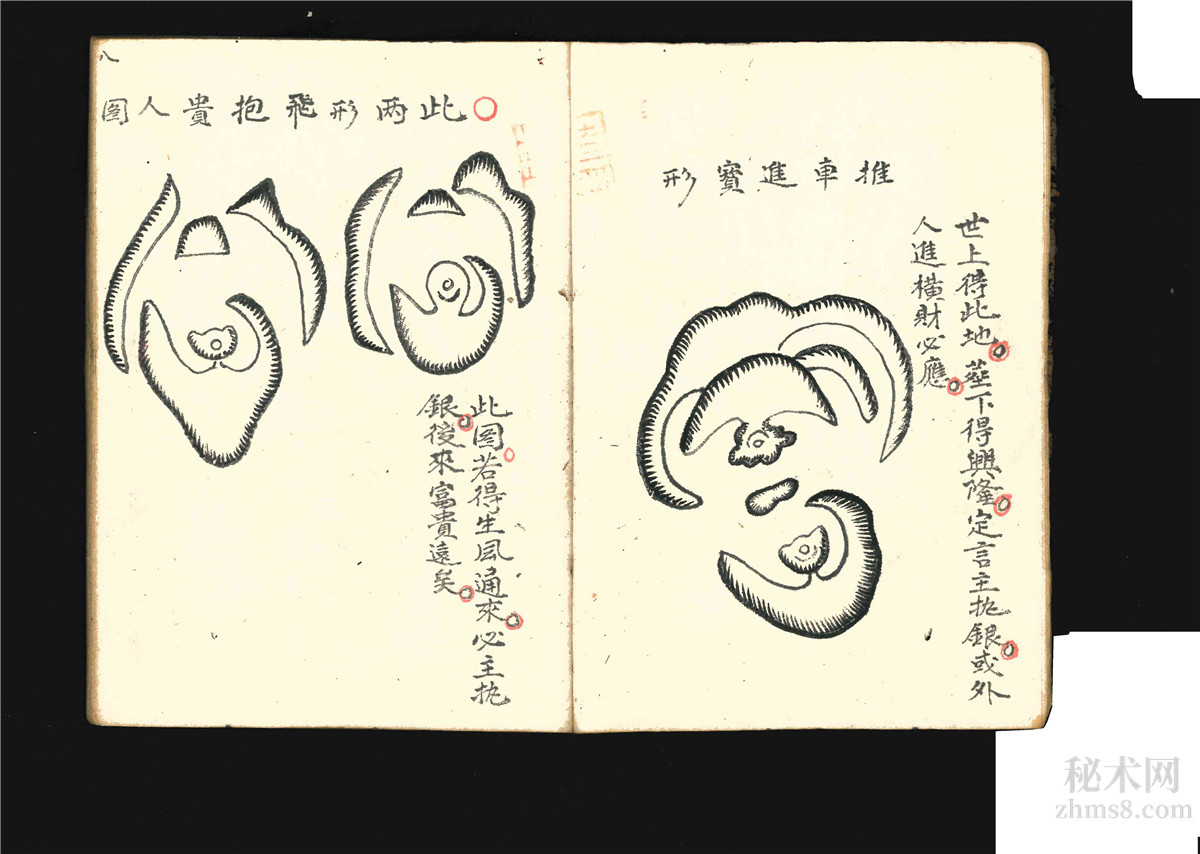 推車進寶形
世上得此地塟下得興隆定言主执銀或外
人進橫財必應
此两形飛抱貴人图
此图若得生風通來必主执
銀後來富貴遠矣
八
秘术网
zhms8.com